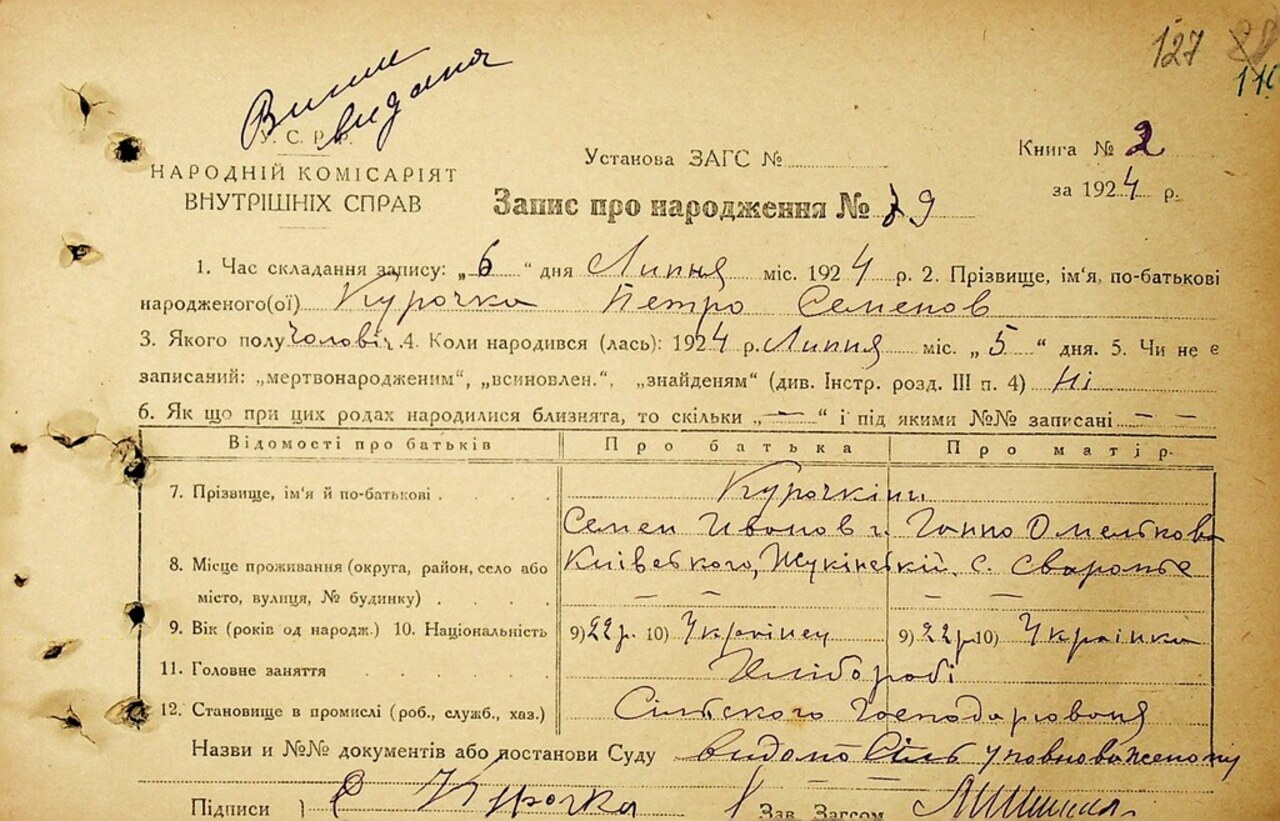 127 88
116
Випис
видана
У. С. Р. Р.
НАРОДНІЙ КОМІСАРІЯТ
ВНУТРІШНІХ СПРАВ
Установа ЗАГС №
Книга № 2
за 1924 р.
Запис про народження № 79
1. Час складання запису: „6“ дня Липня міс. 1924 р. 2. Прізвище, ім'я, по-батькові
народженого(ої) Курочка Петро Семенов
3. Якого полу чоловіч. 4. Коли народився (лась): 1924 р. Липня міс. „5“ дня. 5. Чи не є
записаний: „мертвонародженим“, „всиновлен.“, „знайденям“ (див. Інстр. розд. III п. 4) Ні
6. Як що при цих родах народилися близнята, то скільки „—“ і під якими №№ записані — —
Відомості про батьків Про батька Про матір
7. Прізвище, ім'я й по-батькові Курочкіни
Семен Иванов і Ганна Омелькова
8. Місце проживання (округа, район, село або Київського, Жукінській, с. Сваромье
місто, вулиця, № будинку) — — — —
9. Вік (років од народж.) 10. Національність 9) 22 р. 10) Українец 9) 22 р 10) Українка
11. Головне заняття Хлібороби
12. Становище в промислі (роб., служб., хаз.) Сільского Господарювання
Назви и №№ документів або постанови Суду видано Сіль уповноваженому
Підписи С Курочка Зав. Загсом